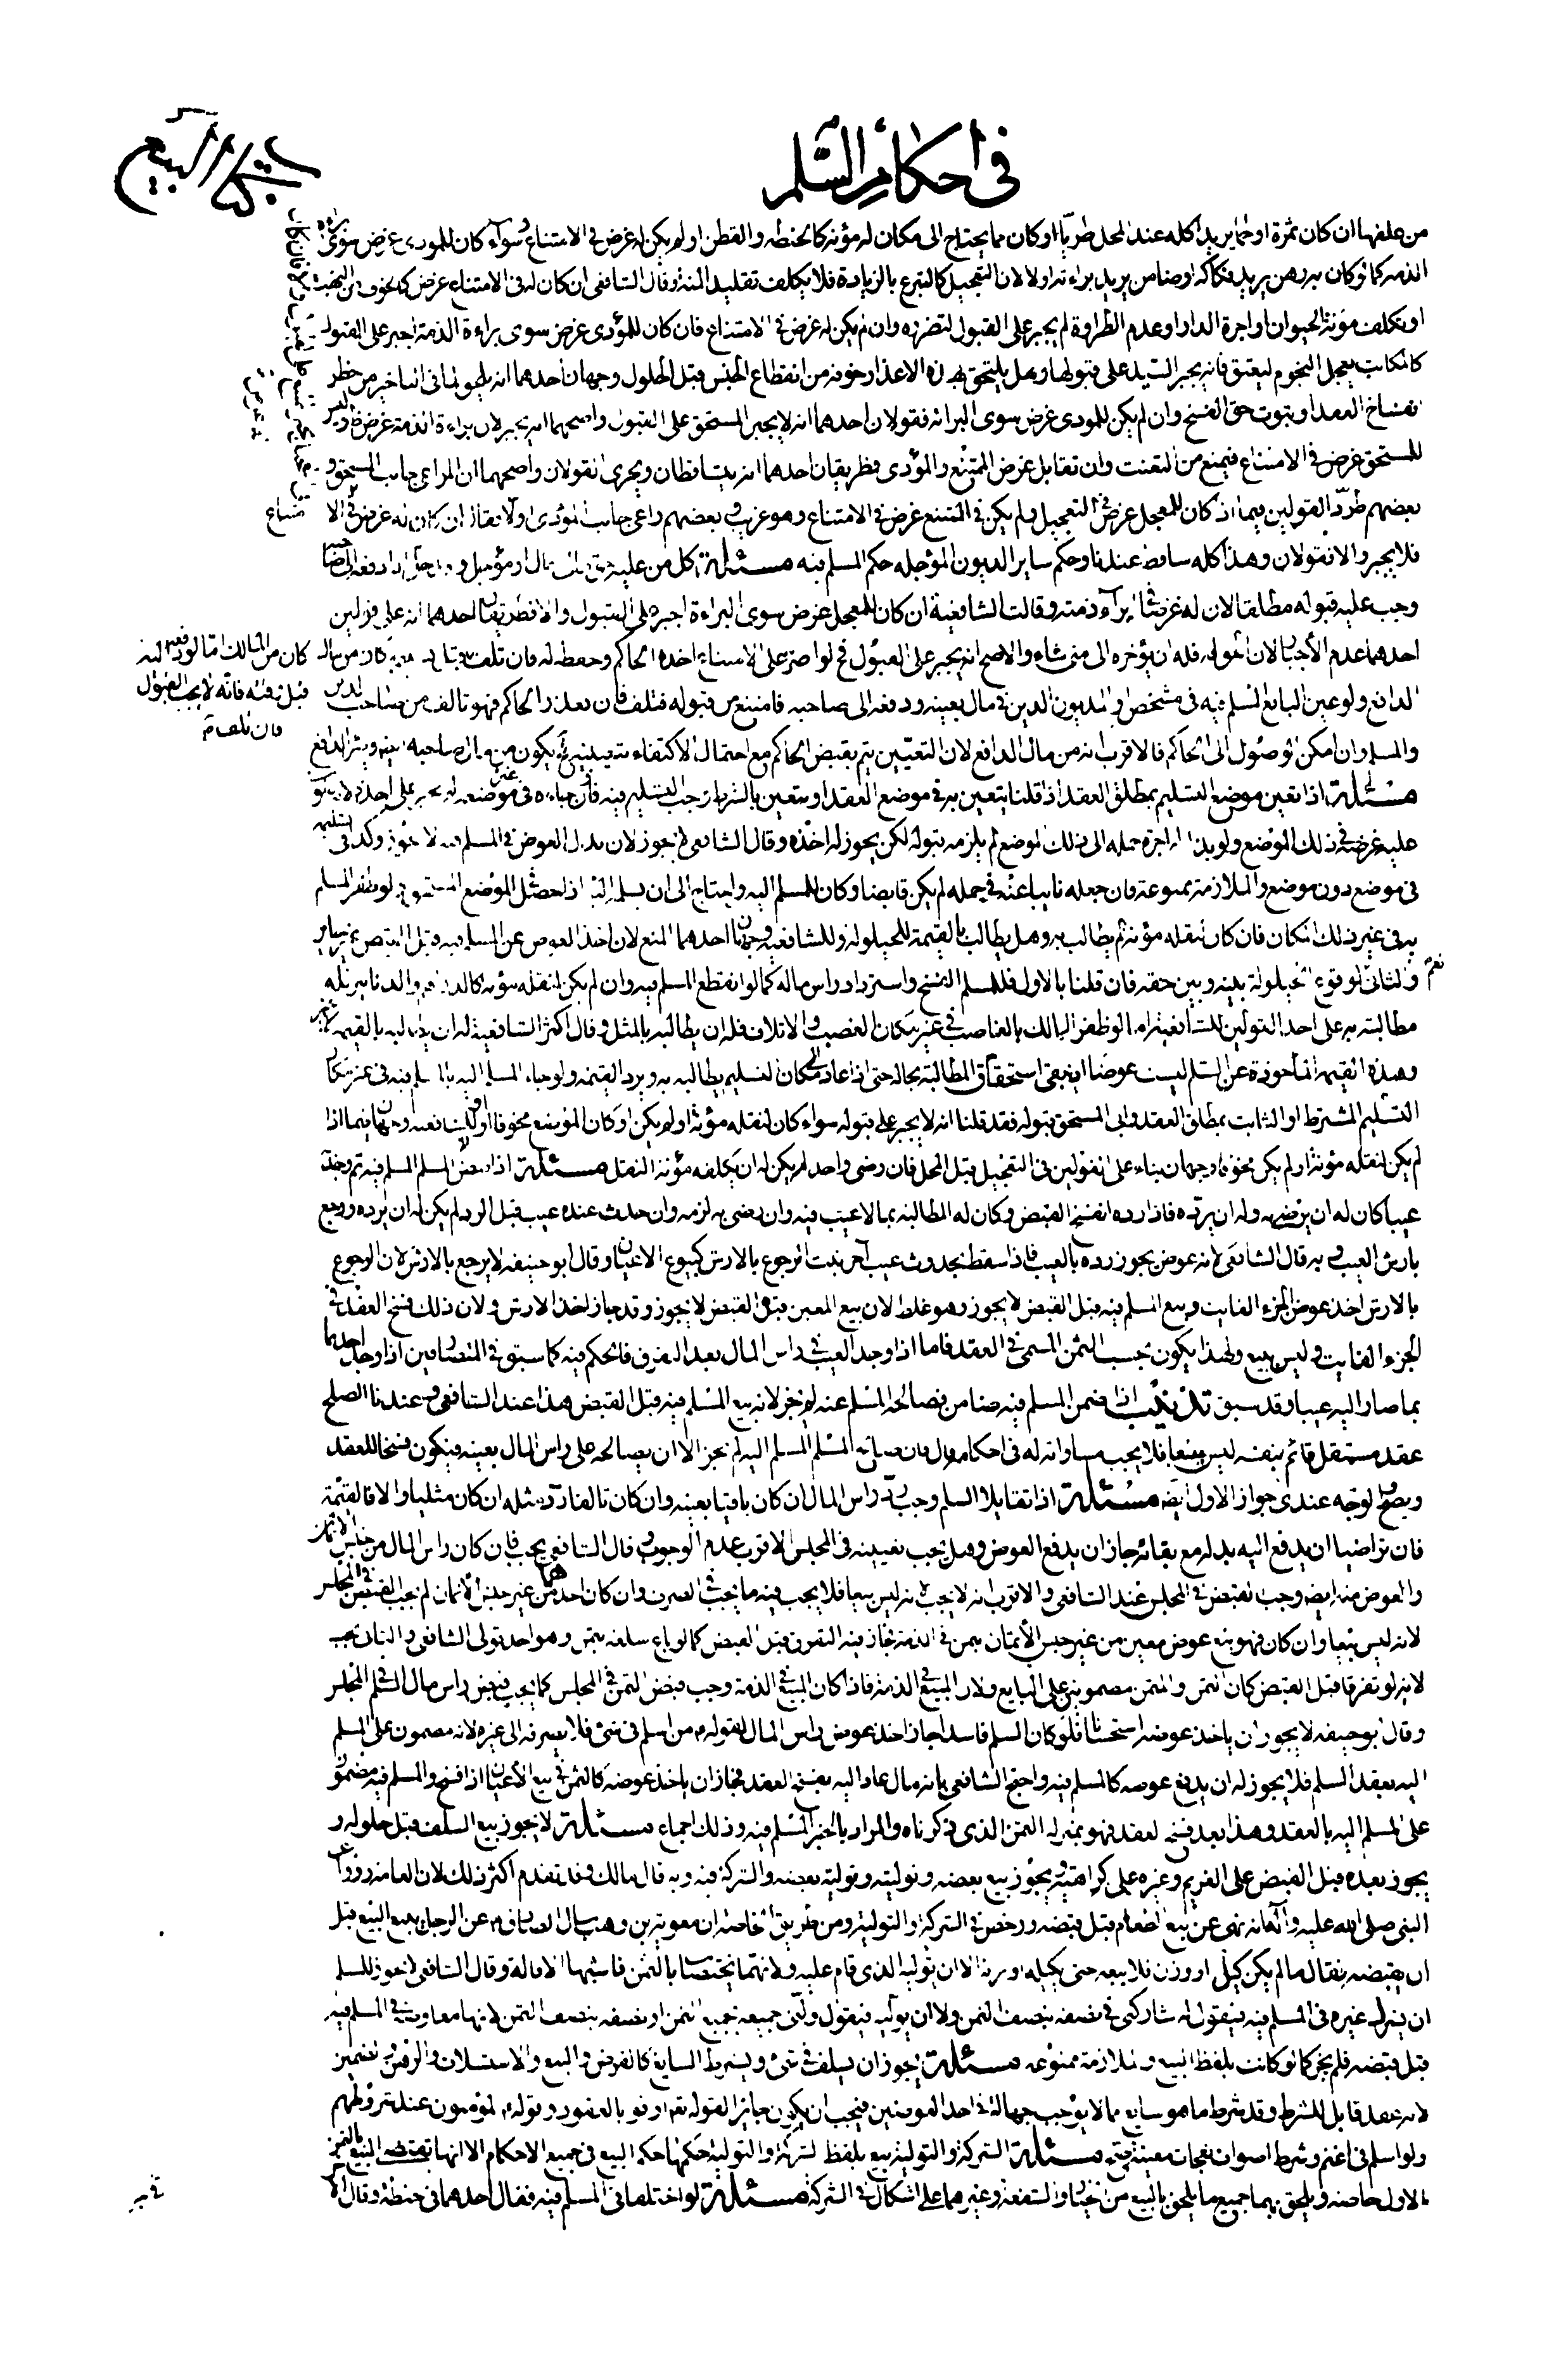 كتاب البيع
في احكام السلم
من علفها ان كان ثمرة او لحما يريد اكله عند المحل طريا او كان مما يحتاج الى مكان له مؤنة كالحنطه والقطن او لم يكن له غرض في الامتناع وسواء كان للمودى غرض سوى براءة
الذمه كما لو كان به رهن يريد فكاكه او ضامن يريد براءته او لا لان التعجيل كالتبرع بالزيادة فلا يكلف تقليد المنة وقال الشافعى ان كان له فى الامتناع غرض كخوف من النهب
او تكلف مؤنة الحيوان او اجرة الدار او عدم الطراوة لم يجبر على القبول لتضرره وان لم يكن له غرض فى الامتناع فان كان للمؤدى غرض سوى براءة الذمة اجبر على القبول
كالمكاتب يعجل النجوم ليعتق فانه يجبر السيد على قبولها وهل يلتحق بهذه الاعذار خوفه من انقطاع الجنس قبل الحلول وجهان احدهما انه يلحق لما في التاخير من خطر
انفساخ العقد او ثبوت حق الفسخ وان لم يكن للمودى غرض سوى البرائه فقولان احدهما انه لا يجبر المستحق على القبول واصحهما انه يجبر لان براءة الذمة غرض ظ وليس
للمستحق غرض فى الامتناع فيمنع من التعنت وان تقابل غرض الممتنع والمؤدى فطريقان احدهما انه يتساقطان ويجرى القولان واصحهما ان المراعى جانب المستحق و
بعضهم طرد القولين فيما اذا كان للمعجل غرض فى التعجيل ولم يكن فى الممتنع غرض فى الامتناع وهو غريب وبعضهم راعى جانب المؤدى اولا فقال ان كان له غرض فى الا
فلا يجبر والا فقولان وهذا كله ساقط عندنا وحكم ساير الديون المؤجله حكم المسلم فيه مسئلة كل من عليه حق من مال او مؤجل و حل اذا دفعه الى صاحبه
وجب عليه قبوله مطلقا لان له غرضا فى ابراء ذمته وقالت الشافعية ان كان للمعجل غرض سوى البراءة اجبر على القبول والا فطريقان احدهما انه على قولين
احدهما عدم الاجبار لان الحق له فله ان يؤخره الى متى شاء والاصح انه يجبر على القبول فح لو اصر على الامتناع اخذه الحاكم وحفظه له فان تلف كان من مال
كان من المالك اما لو دفعه اليه
الدافع ولو عين البايع المسلم فيه فى مشخص او المديون الدين فى مال بعينه ودفعه الى صاحبه فامتنع من قبوله فتلف فان تعذر الحاكم فهو تالف من صاحب الدين
قبل وقته فانه لا يجب القبول
فان تلف
والمسلم وان امكن الوصول الى الحاكم فالاقرب انه من مال الدافع لان التعيين يتم بقبض الحاكم مع احتمال الاكتفاء بتعيينه فح يكون من مال صاحبه
مسئلة اذا تعين موضع التسليم بمطلق العقد اذا قلنا يتعين به فى موضع العقد او بتعين بالشرط وجب التسليم فيه فان جاء به فى غير موضعه لم يجبر على اخذه لانه يفوت
عليه غرضه فى ذلك الموضع ولو بذل له اجرة حمله الى ذلك الموضع لم يلزمه قبوله لكن يجوز له اخذه وقال الشافعى لا يجوز لان بدل العوض فى المسلم فيه لا يجوز وكذا فى تسليمه
فى موضع دون موضع والملازمة ممنوعة فان جعله نايبا عنه فى حمله لم يكن قابضا وكان للمسلم اليه واحتاج الى ان يسلم اليه اذا حصل الموضع المستحق ولو ظفر المسلم
به فى غير ذلك المكان فان كان لنقله مؤنة لم يطالب به وهل يطالب بالقيمة للحيلولة وللشافعيه وجهان احدهما المنع لان اخذ العوض عن المسلم فيه قبل القبض غير جايز
والثانى نعم لوقوع الحيلولة بينه وبين حقه فان قلنا بالاول فللمسلم الفسخ واسترداد راس ماله كما لو انقطع المسلم فيه وان لم يكن لنقله مؤنة كالدراهم والدنانير فله
مطالبته به على احد القولين للشافعية لو ظفر المالك بالغاصب فى غير مكان الغصب والاتلاف فله ان يطالبه بالمثل وقال اكثر الشافعية له ان يطالبه بالقيمه لا غير
وهذه القيمه الماخوذة عن السلم ليست عوضا بل يبقى استحقاق المطالبة بحاله حتى اذا عاد الى مكان التسليم يطالبه به ويرد القيمه ولو جاء المسلم اليه بالمسلم فيه فى غير مكان
التسليم المشترط او الثابت بمطلق العقد وابى المستحق قبوله فقد قلنا انه لا يجبر على قبوله سواء كان لنقله مؤنة او لم يكن او كان الموضع مخوفا او لا وللشافعيه وجهان فيما اذا
لم يكن لنقله مؤنة او لم يكن مخوفا وجهان بناء على القولين فى التعجيل قبل المحل فان رضى واخذه لم يكن له ان يكلفه مؤنة النقل مسئلة اذا قبض المسلم المسلم فيه ثم وجد به
عيبا كان له ان يرضى به وله ان يرده فاذا رده انفسخ القبض وكان له المطالبة بما لا عيب فيه وان رضى به لزمه وان حدث عنده عيب قبل الرد لم يكن له ان يرده ورجع
بارش العيب وبه قال الشافعى لانه عوض يجوز رده بالعيب فاذا سقط بحدوث عيب اخر ثبت الرجوع بالارش كبيوع الاعيان وقال ابو حنيفه لا يرجع بالارش لان الرجوع
بالارش اخذ عوض الجزء الفايت وبيع المسلم فيه قبل القبض لا يجوز وهو غلط لان بيع المعين قبل القبض لا يجوز وقد جاز اخذ الارش ولان ذلك فسخ العقد فى
الجزء الفايت وليس ببيع ولهذا يكون بحسب الثمن المسمى فى العقد فاما اذا وجد العيب فى راس المال بعد التفرق فالحكم فيه كما سبق فى المتصارفين اذا وجد احدهما
بما صار اليه عيبا وقد سبق تذنيب اذا ضمن المسلم فيه ضامن فصالحه المسلم عنه لم يجز لانه بيع المسلم فيه قبل القبض هذا عند الشافعى وعندنا الصلح
عقد مستقل قائم بنفسه ليس بيعا فلا يجب مساواته له فى احكامه قال فان صالح المسلم المسلم اليه لم يجز الا ان يصالحه على راس المال بعينه فيكون فسخا للعقد
ويصح والوجه عندى جواز الاول ايضا مسئلة اذا تقايلا السلم وجب رد راس المال ان كان باقيا بعينه وان كان تالفا رد مثله ان كان مثليا والا فالقيمة
فان تراضيا ان يدفع اليه بدله مع بقائه جاز ان يدفع العوض وهل يجب تعيينه فى المجلس الاقرب عدم الوجوب وقال الشافعى يجب فان كان راس المال من جنس الاثمان
والعوض منه ايضا وجب القبض فى المجلس عند الشافعى والاقرب انه لا يجب لانه ليس بيعا فلا يجب فيه ما يجب فى الصرف وان كان احدهما من غير جنس الاثمان لم يجب القبض فى المجلس
لانه ليس بيعا وان كان فهو بيع عوض معين من غير جنس الاثمان بثمن فى الذمة فجاز فيه التفرق قبل القبض كما لو باع سلعه بثمن وهو احد قولى الشافعى والثانى يجب
لانه لو تفرقا قبل القبض كان الثمن والمثمن مضمونين على البايع ولان المبيع فى الذمة فاذا كان المبيع فى الذمة وجب قبض الثمن فى المجلس كما يجب قبض راس مال السلم فى المجلس
وقال ابو حنيفه لا يجوز ان ياخذ عوضه استحسانا فلو كان السلم فاسدا جاز اخذ عوض راس المال لقوله من اسلم فى شئ فلا يصرفه الى غيره لانه مضمون على المسلم
اليه بعقد السلم فلا يجوز له ان يدفع عوضه كالمسلم فيه واحتج الشافعى بانه مال عاد اليه بفسخ العقد فجاز ان ياخذ عوضه كالثمن فى بيع الاعيان اذا فسخ والمسلم فيه مضمون
على المسلم اليه بالعقد وهذا بعد فسخ العقد فهو بمنزلة الثمن الذى ذكرناه والمراد بالخبر المسلم فيه وذلك اجماع مسئلة لا يجوز بيع السلف قبل حلوله و
يجوز بعده قبل القبض على الغريم وغيره على كراهية ويجوز بيع بعضه وتوليته وتولية بعضه والشركة فيه وبه قال مالك وقد تقدم اكثر ذلك لان العامه رووا عن
النبى صلى الله عليه وآله انه نهى عن بيع الطعام قبل قبضه ورخص فى الشركة والتولية ومن طريق الخاصة ان معوية بن وهب سال الصادق عن الرجل يبيع البيع قبل
ان يقبضه فقال ما لم يكن كيل او وزن فلا يبعه حتى يكيله او يزنه الا ان يوليه الذى قام عليه ولانهما يختصان بالثمن فاشبها الاقالة وقال الشافعى لا يجوز للمسلم
ان يشرك غيره فى المسلم فيه فيقول له شاركنى فى نصفه بنصف الثمن ولا ان يوليه فيقول ولنى جميعه بجميع الثمن او نصفه بنصف الثمن لانها معاوضة فى المسلم فيه
قبل قبضه فلم يجز كما لو كانت بلفظ البيع والملازمة ممنوعه مسئلة يجوز ان يسلف فى شئ ويشترط السايغ كالقرض والبيع والاستسلاف والرهن والتضمين
لانه عقد قابل للشرط وقد شرط ما هو سايغ مما لا يوجب جهالة فى احد العوضين فيجب ان يكون جايزا لقوله تعم اوفوا بالعقود وقوله المؤمنون عند شروطهم
ولو اسلم فى غنم وشرط اصواف نعجات معينة صح مسئلة الشركة والتولية بيع بلفظ الشركة والتولية حكمها حكم البيع فى جميع الاحكام الا انها تقتضى البيع بالثمن
الاول خاصه ويلحق بهما جميع ما يلحق بالبيع من الخيار والشفعة وغيرهما على اشكال فى الشركة مسئلة لو اختلفا فى المسلم فيه فقال احدهما فى حنطة وقال الاخر
فى